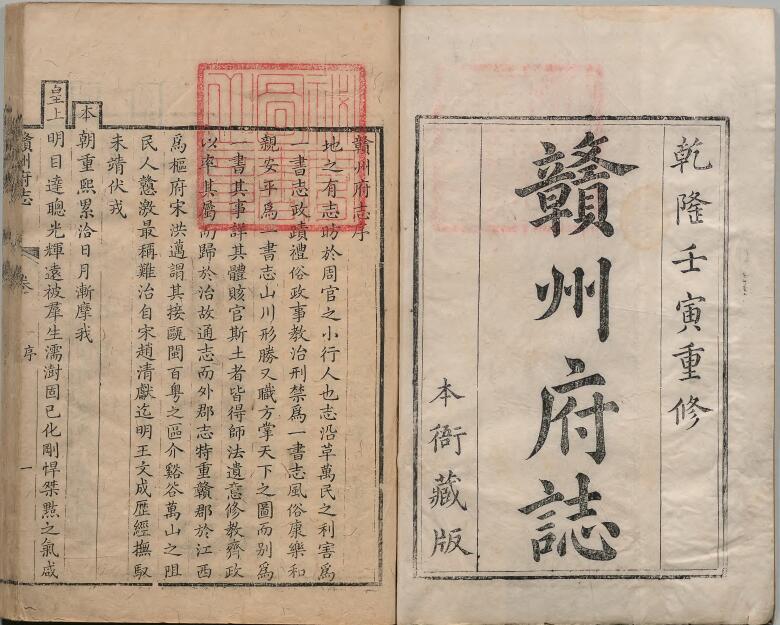 乾隆壬寅重修
贛州府誌
本衙藏版
贛州府志序
地之有志昉於周官之小行人也志沿革萬民之利害為
一書志政蹟禮俗政事教治刑禁爲一書志風俗康樂和
親安平爲一書志山川形勝又職方掌天下之圖而別爲
一書其事詳其體賅官斯土者皆得師法遺意修教齊政
以率其屬而歸於治故通志而外郡志特重贛郡於江西
爲樞府宋洪邁謂其接甌閩百粵之區介谿谷萬山之阻
民人戇激最稱難治自宋趙清獻迄明王文成歷經撫馭
未靖伏戎
本朝重熙累洽日月漸摩我
皇上明目達聰光輝遠被羣生濡澍固已化剛悍桀黠之氣咸
贛州府志
序
一